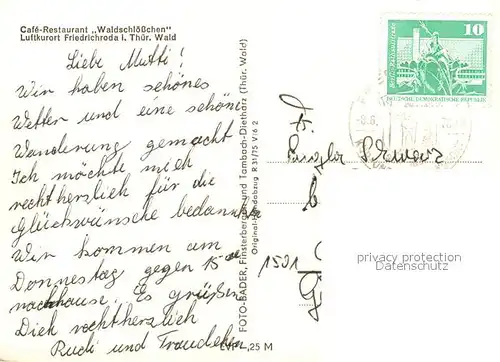 Café-Restaurant „Waldschlößchen"
Luftkurort Friedrichroda i. Thür. Wald
Liebe Mutti!
Wir haben schönes
Wetter und eine schöne
Wanderung gemacht
Ich möchte mich
rechtherzlich für die
Glückwünsche bedanken
Wir kommen am
Donnestag gegen 15
nachhause. Es grüßen
Dich rechtherzlich
Rudi und Traudchen
FOTO-BADER, Finsterbergen und Tambach-Dietharz (Thür. Wald)
Original-Handabzug R 31/75 V 6 2
EVP –,25 M
10
DEUTSCHE DEMOKRATISCHE REPUBLIK
Fr.
1591
privacy protection
Datenschutz